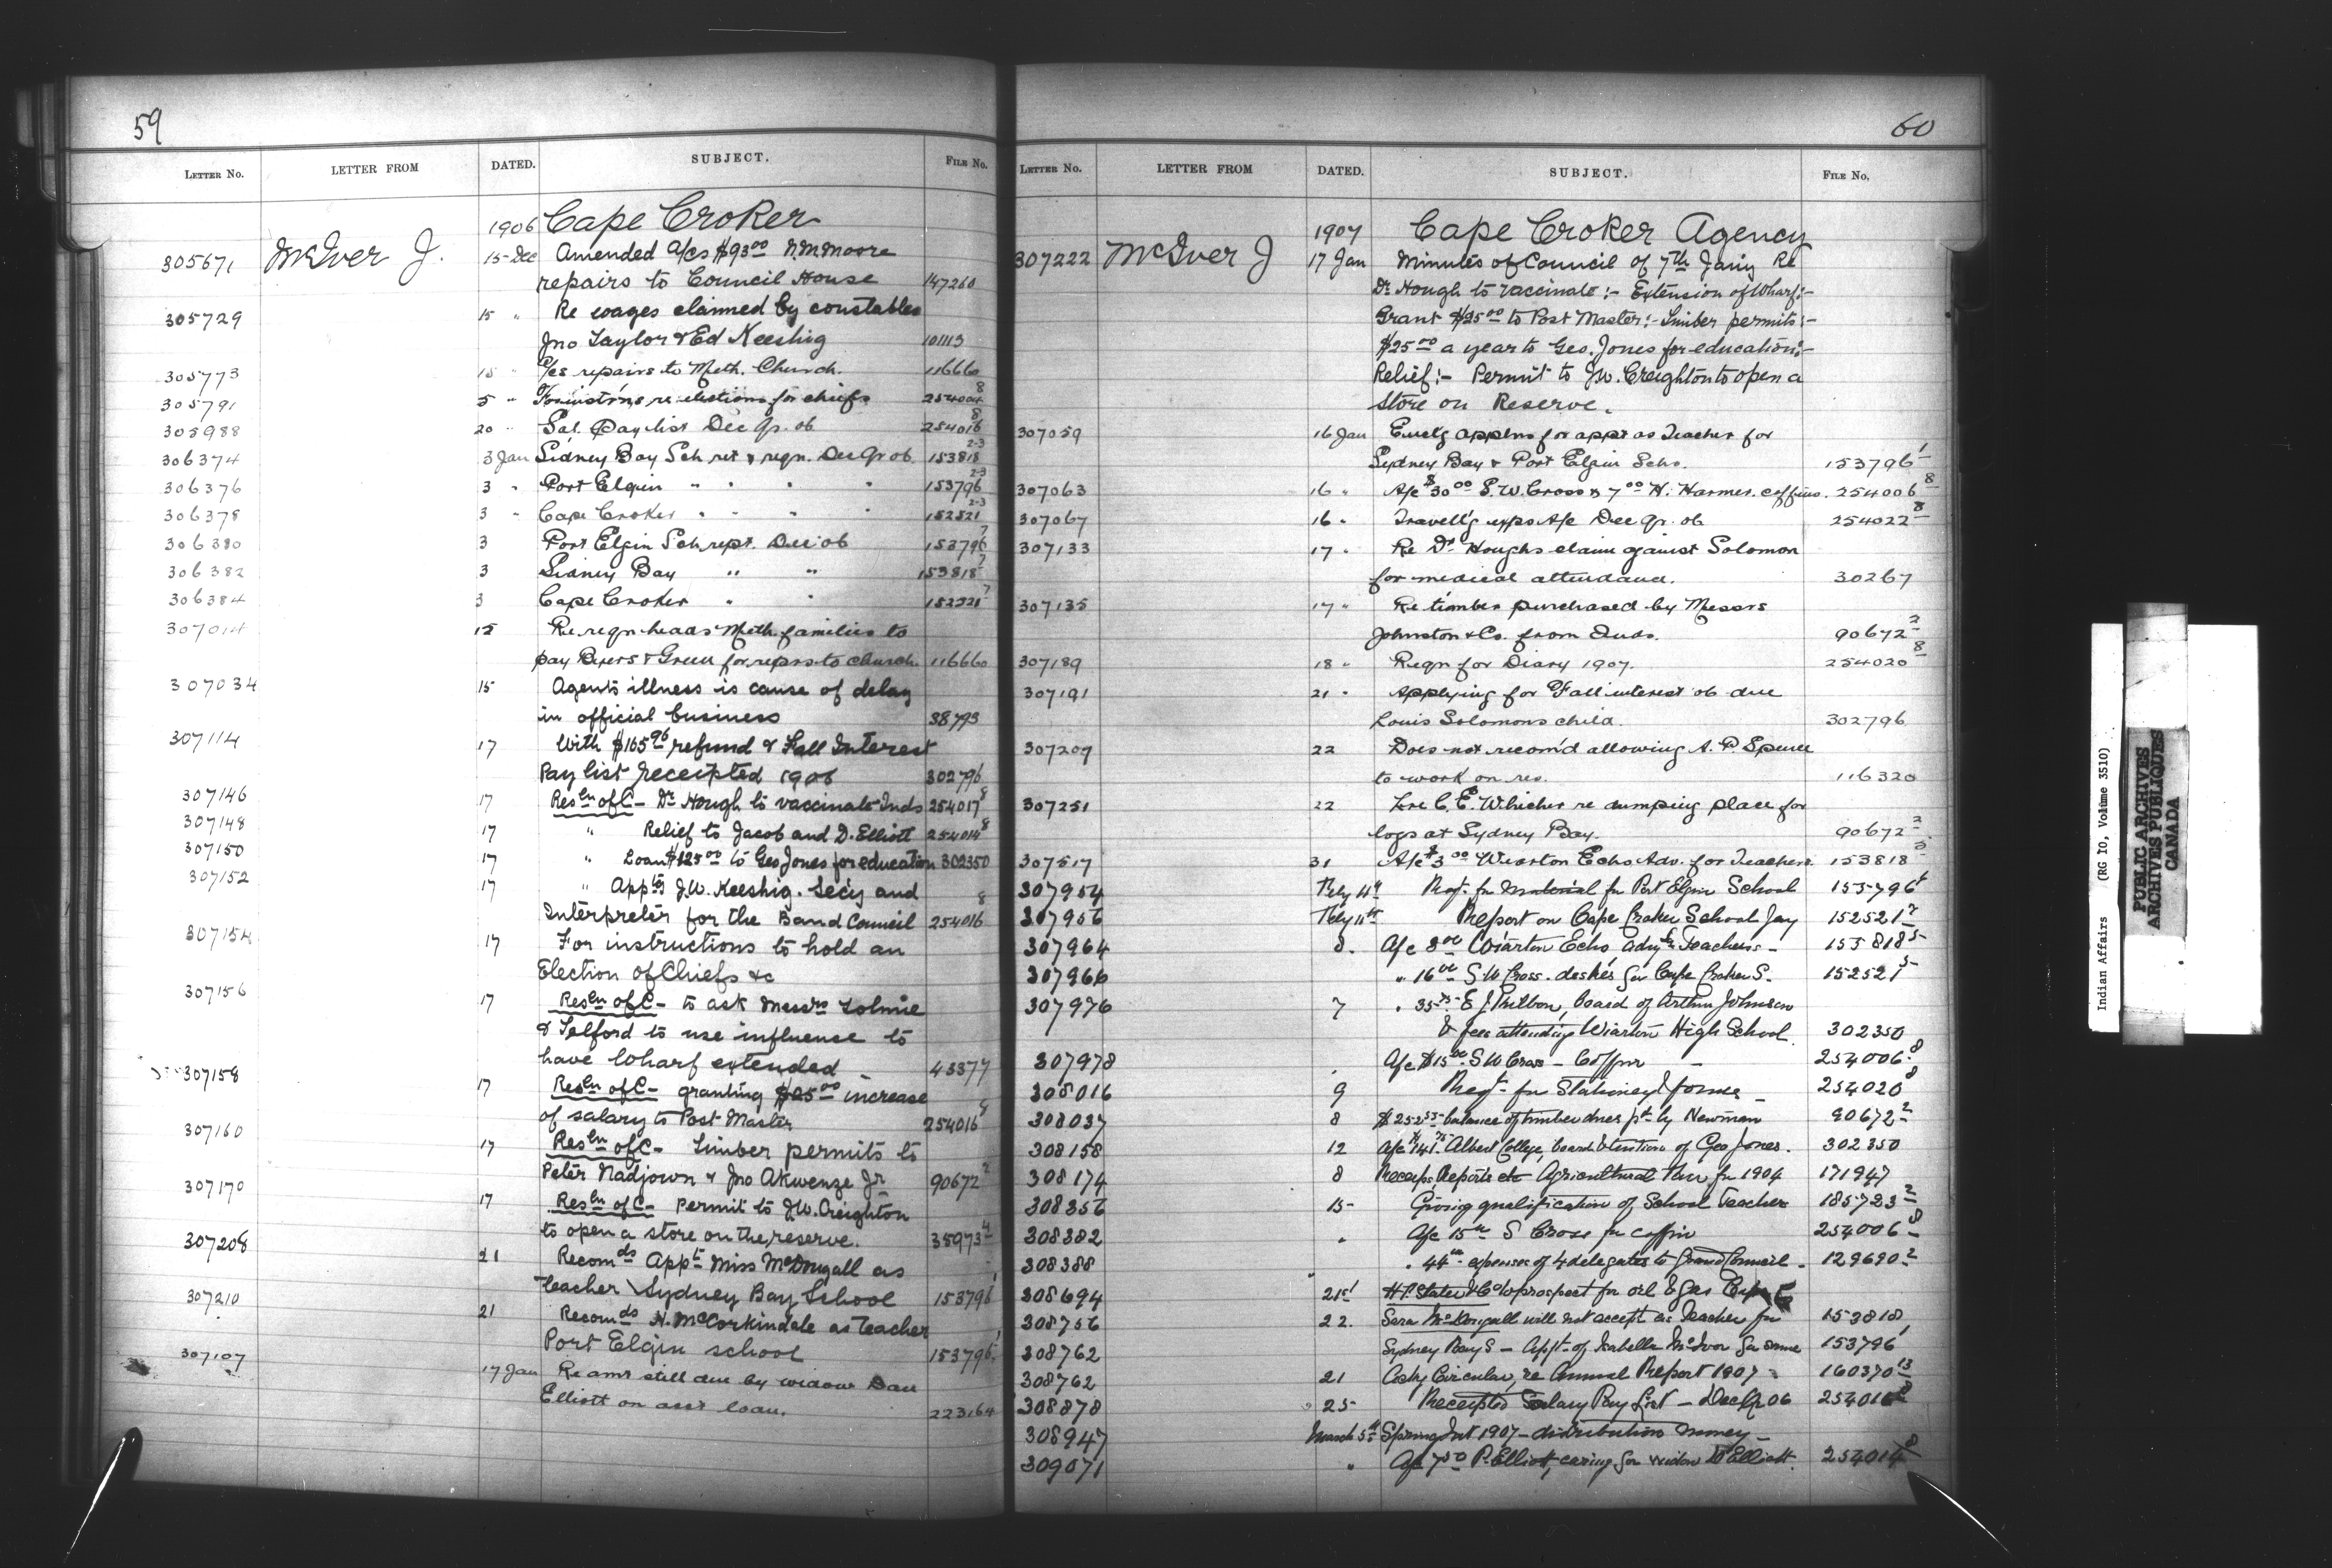 59
LETTER NO. LETTER FROM DATED. SUBJECT. FILE NO.
1906 Cape Croker
305671 McIver J. 15 Dec Amended a/cs $93.00 N. McMoore
repairs to Council House 147260
305729 15 " Re wages claimed by constables
Jno Taylor & Ed Keeshig 101113
305773 15 " a/cs repairs to Meth. Church. 116660
305791 5 " For instrns re elections for chiefs 254004 8
305988 20 " Sal. Paylist Dec Qr. 06 254016 8
306374 3 Jan Sidney Bay Sch ret & reqn. Dec Qr 06 153818 2-3
306376 3 " Port Elgin " " " " 153796 2-3
306378 3 " Cape Croker " " " " 152521 2-3
306380 3 Port Elgin Sch rept. Dec 06 153796 7
306382 3 Sidney Bay " " 153818 7
306384 3 Cape Croker " " 152521 7
307014 15 Re reqn heads Meth. families to
pay Beers & Green for reprs to church. 116660
307034 15 Agents illness is cause of delay
in official business 38793
307114 17 With $165.96 refund & Fall Interest
Pay list receipted 1906 302796
307146 17 Resln of C - Dr Hough to vaccinate Inds 254017 8
307148 17 " Relief to Jacob and D. Elliott 254014 8
307150 17 " Loan $125.00 to Geo Jones for education 302350
307152 17 " Appts J.W. Keeshig. Secy and
Interpreter for the Band Council 254016 8
307154 17 For instructions to hold an
Election of Chiefs &c
307156 17 Resln of C - to ask Messrs Tolmie
& Telford to use influence to
have wharf extended - 43377
307158 17 Resln of C - granting $25.00 increase
of salary to Post Master 254016 8
307160 17 Resln of C - Timber permits to
Peter Nadjown & Jno Akwenze Jr 90672 2
307170 17 Resln of C - Permit to J.W. Creighton
to open a store on the reserve. 35973 4
307208 21 Recomds Appt Miss McDougall as
teacher Sydney Bay School 153796 1
307210 21 Recomds N. McCorkindale as teacher
Port Elgin school 153796 1
307107 17 Jan Re amt still due by widow Dan
Elliott on asst loan. 223164
60
LETTER NO. LETTER FROM DATED. SUBJECT. FILE NO.
1907 Cape Croker Agency
307222 McIver J 17 Jan Minutes of Council of 7th Jany Re
Dr Hough to vaccinate :- Extension of Wharf:-
Grant $25.00 to Post Master:- Timber permits:-
$25.00 a year to Geo. Jones for education:-
Relief:- Permit to J.W. Creighton to open a
store on Reserve.
307059 16 Jan Encl'g applns for appt as Teacher for
Sydney Bay & Port Elgin Schs. 153796 1
307063 16 " A/c $30.00 S.W. Cross & 7.00 H. Harmer. coffins. 254006 8
307067 16 " Travell'g exps A/c Dec Qr. 06 254022 8
307133 17 " Re Dr Houghs claim against Solomon
for medical attendance. 30267
307135 17 " Re timber purchased by Messrs
Johnston & Co. from Inds. 90672 2
307189 18 " Reqn for Diary 1907. 254020 8
307191 21 " Applying for Fall interest 06 due
Louis Solomons child. 302796
307209 22 Does not recom'd allowing A. P. Spence
to work on res. 116320
307251 22 Lre C. E. Whicher re dumping place for
logs at Sydney Bay. 90672 2
307517 31 A/c $3.00 Wiarton Echo Adv. for Teachers 153818 5
307954 Feby 11th Reqt for Material for Port Elgin School 153796 5
307956 Feby 11th Report on Cape Croker School Jay 152521 7
307964 8. A/c 8.00 Wiarton Echo advg for Teachers - 153818 5
307966 " 16.00 S W Cross. desks for Cape Croker S. 152521 5
307976 7 " 35.75 E J , board of Arthur Johnson
& fees attending Wiarton High School. 302350
307978 A/c $15.00 S W Cross - Coffin - 254006 8
308016 9 Reqt for Stationery & forms - 254020 8
308037 8 $252.53 balance of timber dues pd by Newman 90672 2
308158 12 A/c $141.75 Albert College, board & tuition of Geo Jones. 302350
308174 8 Receips, Reports etc Agricultural Fair for 1904 171947
308356 15 Giving qualification of School Teacher 185723 2
308382 " A/c 15.00 S Cross for coffin 254006 8
308388 " " 44.00 expenses of 4 delegates to Grand Council - 129690 2
308694 21st H P Slater & Co to prospect for oil & gas Cape C
308756 22. Sara McDougall will not accept as Teacher for 153818
308762 Sydney Bay S - Appt. of Isabella McIver for same 153796 1
308762 21 Ackg Circular, re Annual Report 1907 - 160370 13
308878 25 Receipted Salary Pay List - Dec Qr 06 254016 8
308947 March 5th Spring Int 1907 - distribution money -
309071 " A/c 7.50 P. Elliott, caring for widow D Elliott. 254014 8
Indian Affairs (RG 10, Volume 3510)
PUBLIC ARCHIVES
ARCHIVES PUBLIQUES
CANADA